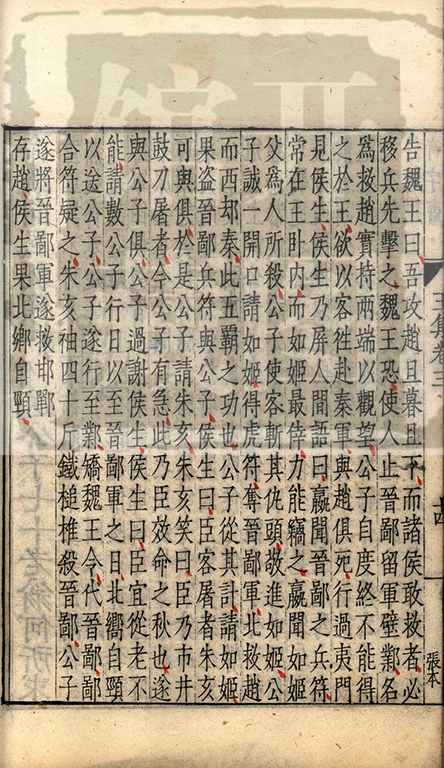 告魏王曰吾攻趙旦暮且下而諸侯敢救者必
移兵先擊之魏王恐使人止晉鄙留軍壁鄴名
爲救趙實持兩端以觀望公子自度終不能得
之於王欲以客徃赴秦軍與趙俱死行過夷門
見侯生侯生乃屏人間語曰嬴聞晉鄙之兵符
常在王卧内而如姬最倖力能竊之嬴聞如姬
父爲人所殺公子使客斬其仇頭敬進如姬公
子誠一開口請如姬得虎符奪晉鄙軍北救趙
而西却秦此五霸之功也公子從其計請如姬
果盗晉鄙兵符與公子侯生曰臣客屠者朱亥
可與俱於是公子請朱亥朱亥笑曰臣乃市井
鼓刀屠者今公子有急此乃臣效命之秋也遂
與公子俱公子過謝侯生侯生曰臣宜從老不
能請數公子行日以至晉鄙軍之日北嚮自頸
以送公子公子遂行至鄴矯魏王令代晉鄙鄙
合符疑之朱亥袖四十斤鐵槌椎殺晉鄙公子
遂將晉鄙軍遂救邯鄲
存趙侯生果北鄉自頸
張本